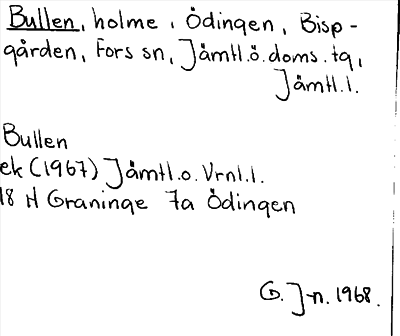 Bullen, holme i Ödingen, Bisp-
gården, Fors sn, Jämtl.ö.doms.tg,
Jämtl.l.
Bullen
ek (1967) Jämtl.o.Vrnl.l.
18 H Graninge 7a Ödingen
G. J-n. 1968.